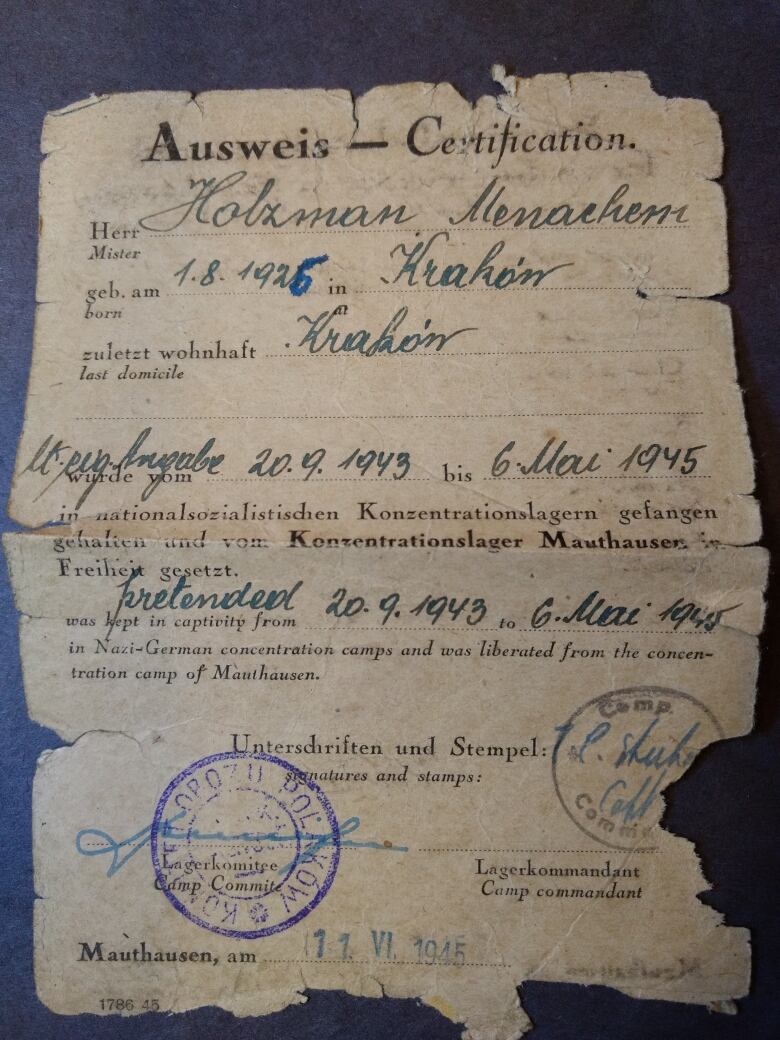 Ausweis — Certification.
Herr Holzman Menachem
Mister
geb. am 1.8.1926 in Kraków
born in
zuletzt wohnhaft Kraków
last domicile
lt. eig. Angabe
wurde vom 20.9.1943 bis 6. Mai 1945
in nationalsozialistischen Konzentrationslagern gefangen
gehalten und vom Konzentrationslager Mauthausen in
Freiheit gesetzt.
pretended
was kept in captivity from 20.9.1943 to 6. Mai 1945
in Nazi-German concentration camps and was liberated from the concen-
tration camp of Mauthausen.
Camp
Unterschriften und Stempel:
signatures and stamps:
KOMITET OBOZU POLAKÓW
Lagerkomitee
Camp Committe
Lagerkommandant
Camp commandant
Mauthausen, am 11. VI. 1945
1786 45